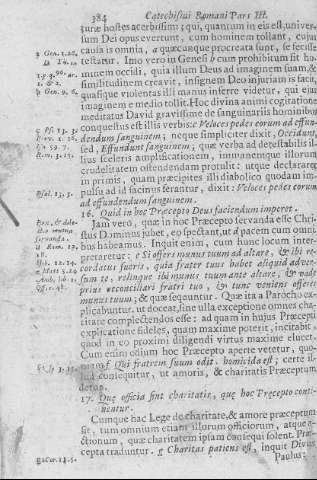 384 Catechismi Romani Pars III.
turæ hostes acerbissimi; qui, quantum in eis est, univer-
sum Dei opus evertunt, cum hominem tollant, cujus
causa is omnia, a quæcunque procreata sunt, se fecisse
testatur. Imo vero in Genesi b cum prohibitum sit ho-
minem occidi, quia illum Deus ad imaginem suam, &
similitudinem creavit, insignem Deo injuriam is facit,
quasique violentas illi manus inferre videtur, qui ejus
imaginem e medio tollit. Hoc divina animi cogitatione
meditatus David gravissime de sanguinariis hominibus
conquestus est illis verbis: c Veloces pedes eorum ad effun-
dendum sanguinem; neque simpliciter dixit, Occidunt,
sed, Effundunt sanguinem; quæ verba ad detestabilis il-
lius sceleris amplificationem, immanemque illorum
crudelitatem ostendendam protulit: utque declararet
in primis, quam præcipites illi diabolico quodam im-
pulsu ad id facinus ferantur, dixit: Veloces pedes eorum
ad effundendum sanguinem.
16. Quid in hoc Præcepto Deus faciendum imperet.
Jam vero, quæ in hoc Præcepto servanda esse Chri-
stus Dominus jubet, eo spectant, ut d pacem cum omni-
bus habeamus. Inquit enim, cum hunc locum inter-
pretaretur: e Si offers munus tuum ad altare, & ibi re-
cordatus fueris, quia frater tuus habet aliquid adver-
sum te, relinque ibi munus tuum ante altare, & vade
prius reconciliari fratri tuo, & tunc veniens offeres
munus tuum; & quæ sequuntur. Quæ ita a Parocho ex-
plicabuntur, ut doceat, sine ulla exceptione omnes cha-
ritate complectendos esse: ad quam in hujus Præcepti
explicatione fideles, quam maxime poterit, incitabit,
quod in eo proximi diligendi virtus maxime elucet.
Cum enim odium hoc Præcepto aperte vetetur, quo-
niam f Qui fratrem suum odit, homicida est; certe il-
lud consequitur, ut amoris, & charitatis Præceptum
detur.
17. Quæ officia sint charitatis, quæ hoc Præcepto conti-
nentur.
Cumque hac Lege de charitate, & amore præceptum
sit, tum omnium etiam illorum officiorum, atque a-
ctionum, quæ charitatem ipsam consequi solent, Præ-
cepta traduntur. g Charitas patiens est, inquit Divus
Paulus: